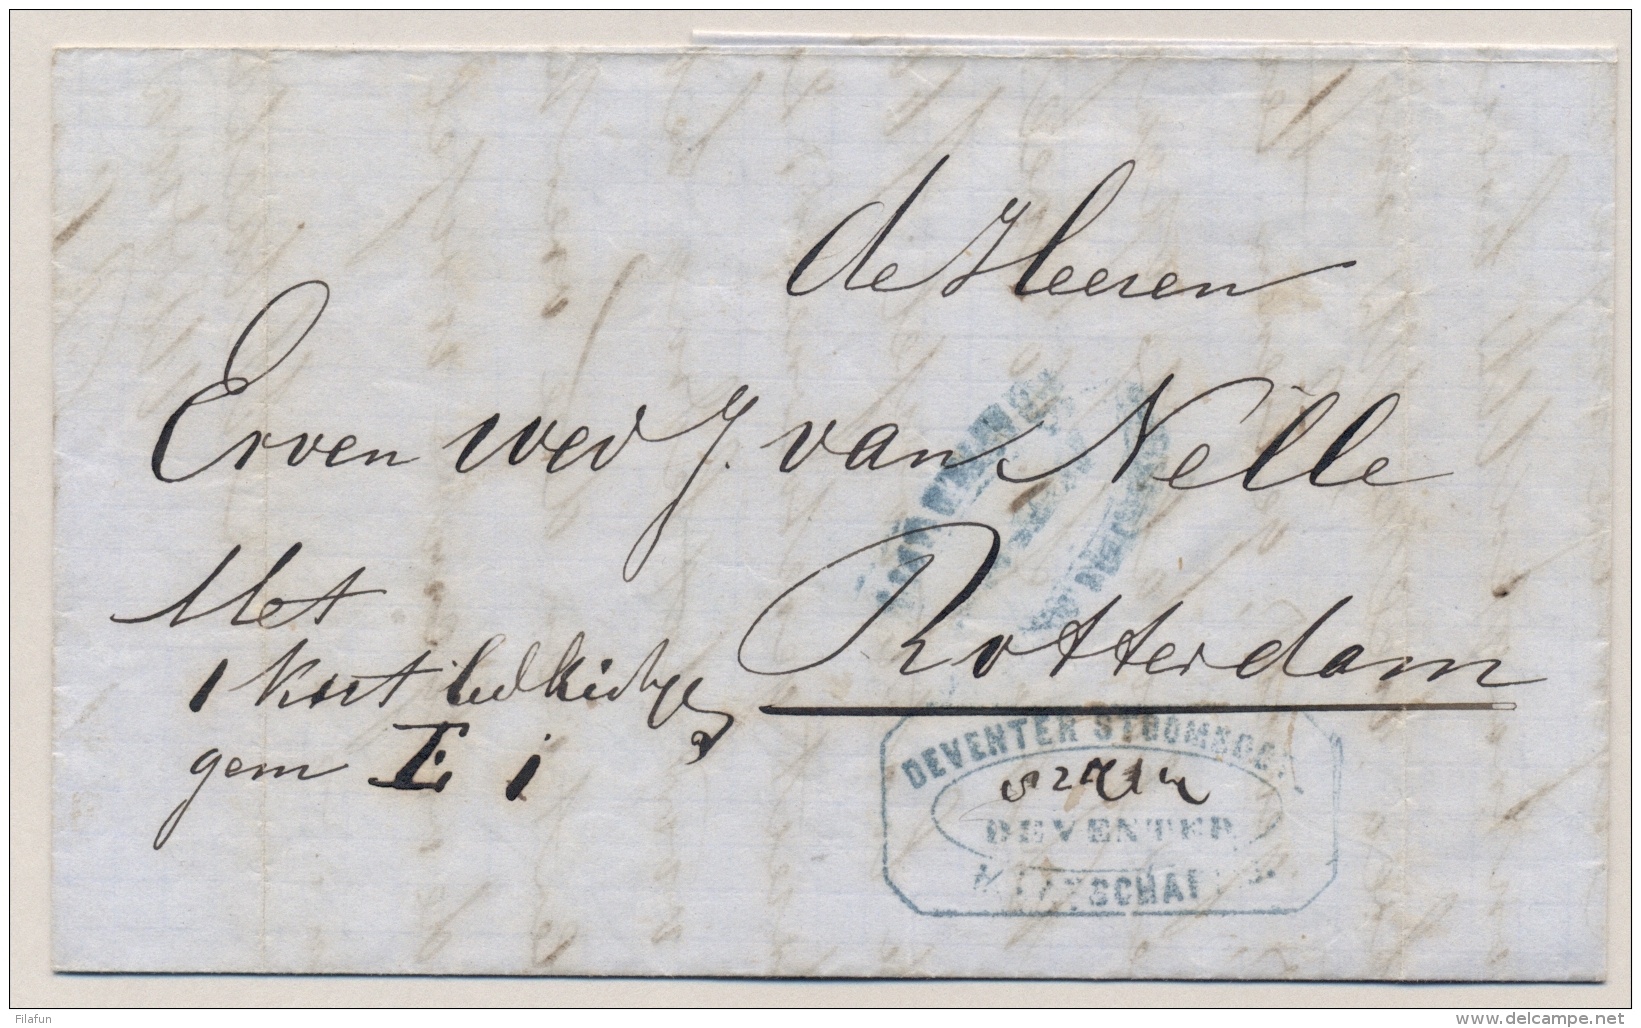 de Heeren
Erven wed J. van Nelle
Rotterdam
Met
1 kist
gem E i
DEVENTER STOOMBOOT
DEVENTER
MAATSCHAPPIJ.
Filafun
delcampe.net